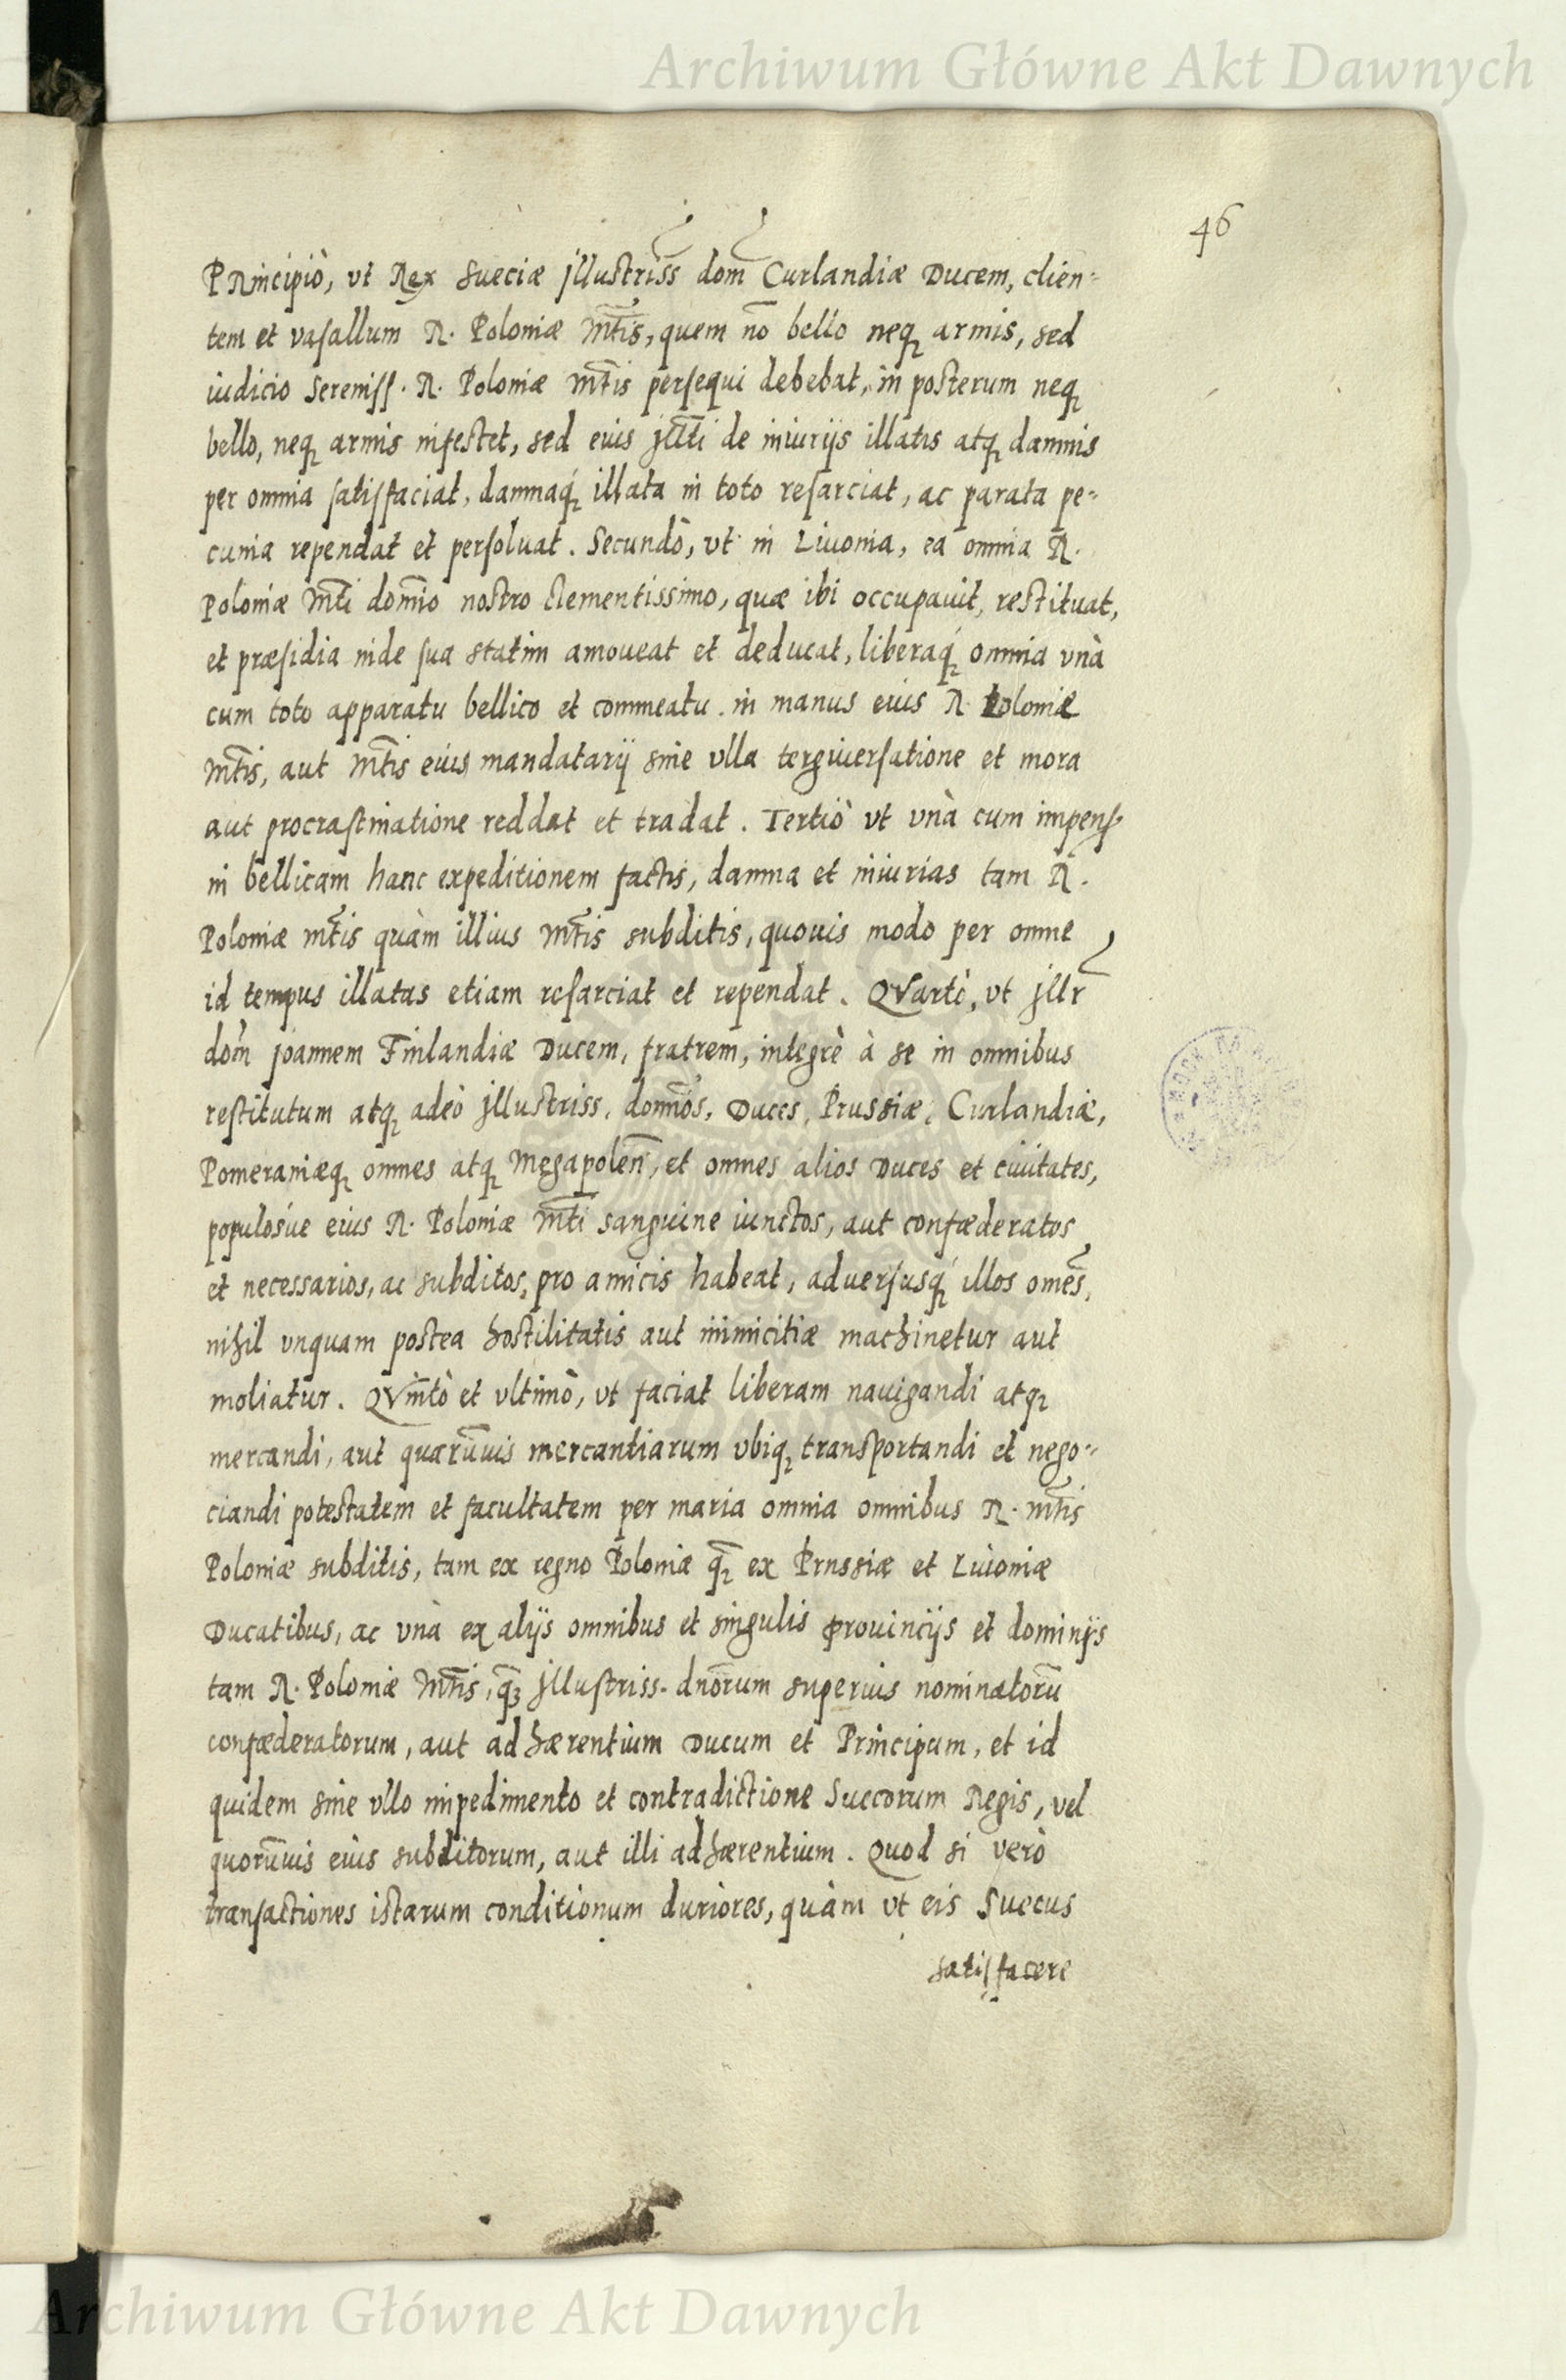 Archiwum Główne Akt Dawnych
46
PRincipiò, vt Rex Sueciæ jllustriss dom̄ Curlandiæ Ducem, clien-
tem et vasallum R. Poloniæ Mt̄is, quem nō bello neq₃ armis, sed
iudicio Sereniss. R. Poloniæ Mt̄is persequi debebat, in posterum neq₃
bello, neq₃ armis infestet, sed eius jllt̄i de iniurijs illatis atq₃ damnis
per omnia satisfaciat, damnaq́₃ illata in toto resarciat, ac parata pe-
cunia rependat et persoluat. Secundò, vt in Liuonia, ea omnia R.
Poloniæ Mt̄i domīo nostro clementissimo, quæ ibi occupauit, restituat,
et præsidia inde sua statim amoueat et deducat, liberaq́₃ omnia vnà
cum toto apparatu bellico et commeatu in manus eius R. Poloniæ
Mt̄is, aut Mt̄is eius mandatarij sine vlla tergiuersatione et mora
aut procrastinatione reddat et tradat. Tertiò vt vnà cum impens.
in bellicam hanc expeditionem factis, damna et iniurias tam R.
Poloniæ Mt̄is quàm illius Mt̄is subditis, quouis modo per omne
id tempus illatas etiam resarciat et rependat. QVartò, vt jllr̄
dom̄ joannem Finlandiæ Ducem, fratrem, integrè à se in omnibus
restitutum atq₃ adeò jllustriss. domn̄os, Duces, Prussiæ, Curlandiæ,
Pomeraniæq₃ omnes atq₃ Megapolen̄, et omnes alios Duces et ciuitates,
populosúe eius R. Poloniæ Mt̄i sanguine iunctos, aut confæderatos
et necessarios, ac subditos, pro amicis habeat, aduersusq́₃ illos omēs,
nihil vnquam postea hostilitatis aut inimicitiæ machinetur aut
moliatur. QVintò et vltimò, vt faciat liberam nauigandi atq₃
mercandi, aut quarūuis mercantiarum vbiq₃ transportandi et nego-
ciandi potestatem et facultatem per maria omnia omnibus R. Mt̄is
Poloniæ subditis, tam ex regno Poloniæ q̄₃ ex Prussiæ et Liuoniæ
Ducatibus, ac vnà ex alijs omnibus et singulis prouincijs et dominijs
tam R. Poloniæ Mt̄is, q̄₃ jllustriss. dnōrum superius nominatorū
confæderatorum, aut adhærentium Ducum et Principum, et id
quidem sine vllo impedimento et contradictione Suecorum Regis, vel
quorūuis eius subditorum, aut illi adhærentium. Quod si verò
transactiones istarum conditionum duriores, quàm vt eis Suecus
satisfacere
Archiwum Główne Akt Dawnych